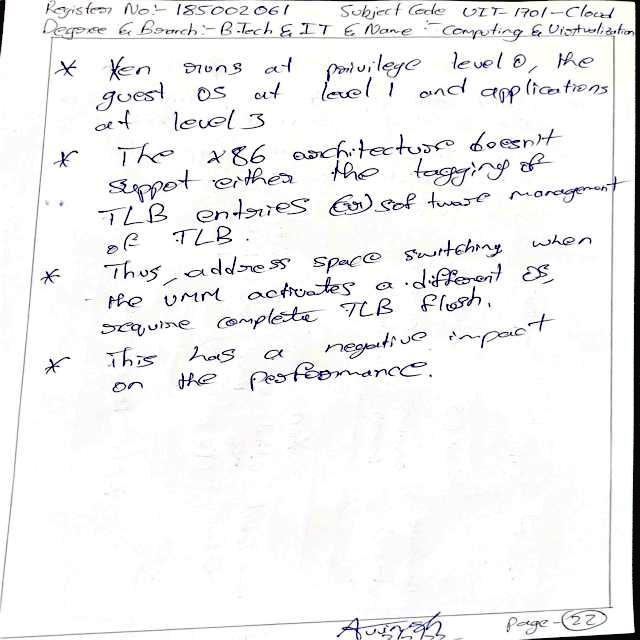 Register No:- 185002061 Subject Code UIT-1701-Cloud
Degree & Branch:- B.Tech & IT & Name:- Computing & Virtualization
* Xen runs at privilege level 0, the
guest OS at level 1 and applications
at level 3
* The x86 architecture doesn't
suppot either the tagging of
TLB entries (or) software management
of TLB.
* Thus, address space switching when
the VMM activates a different OS,
require complete TLB flush.
* This has a negative impact
on the performance.
Page-22